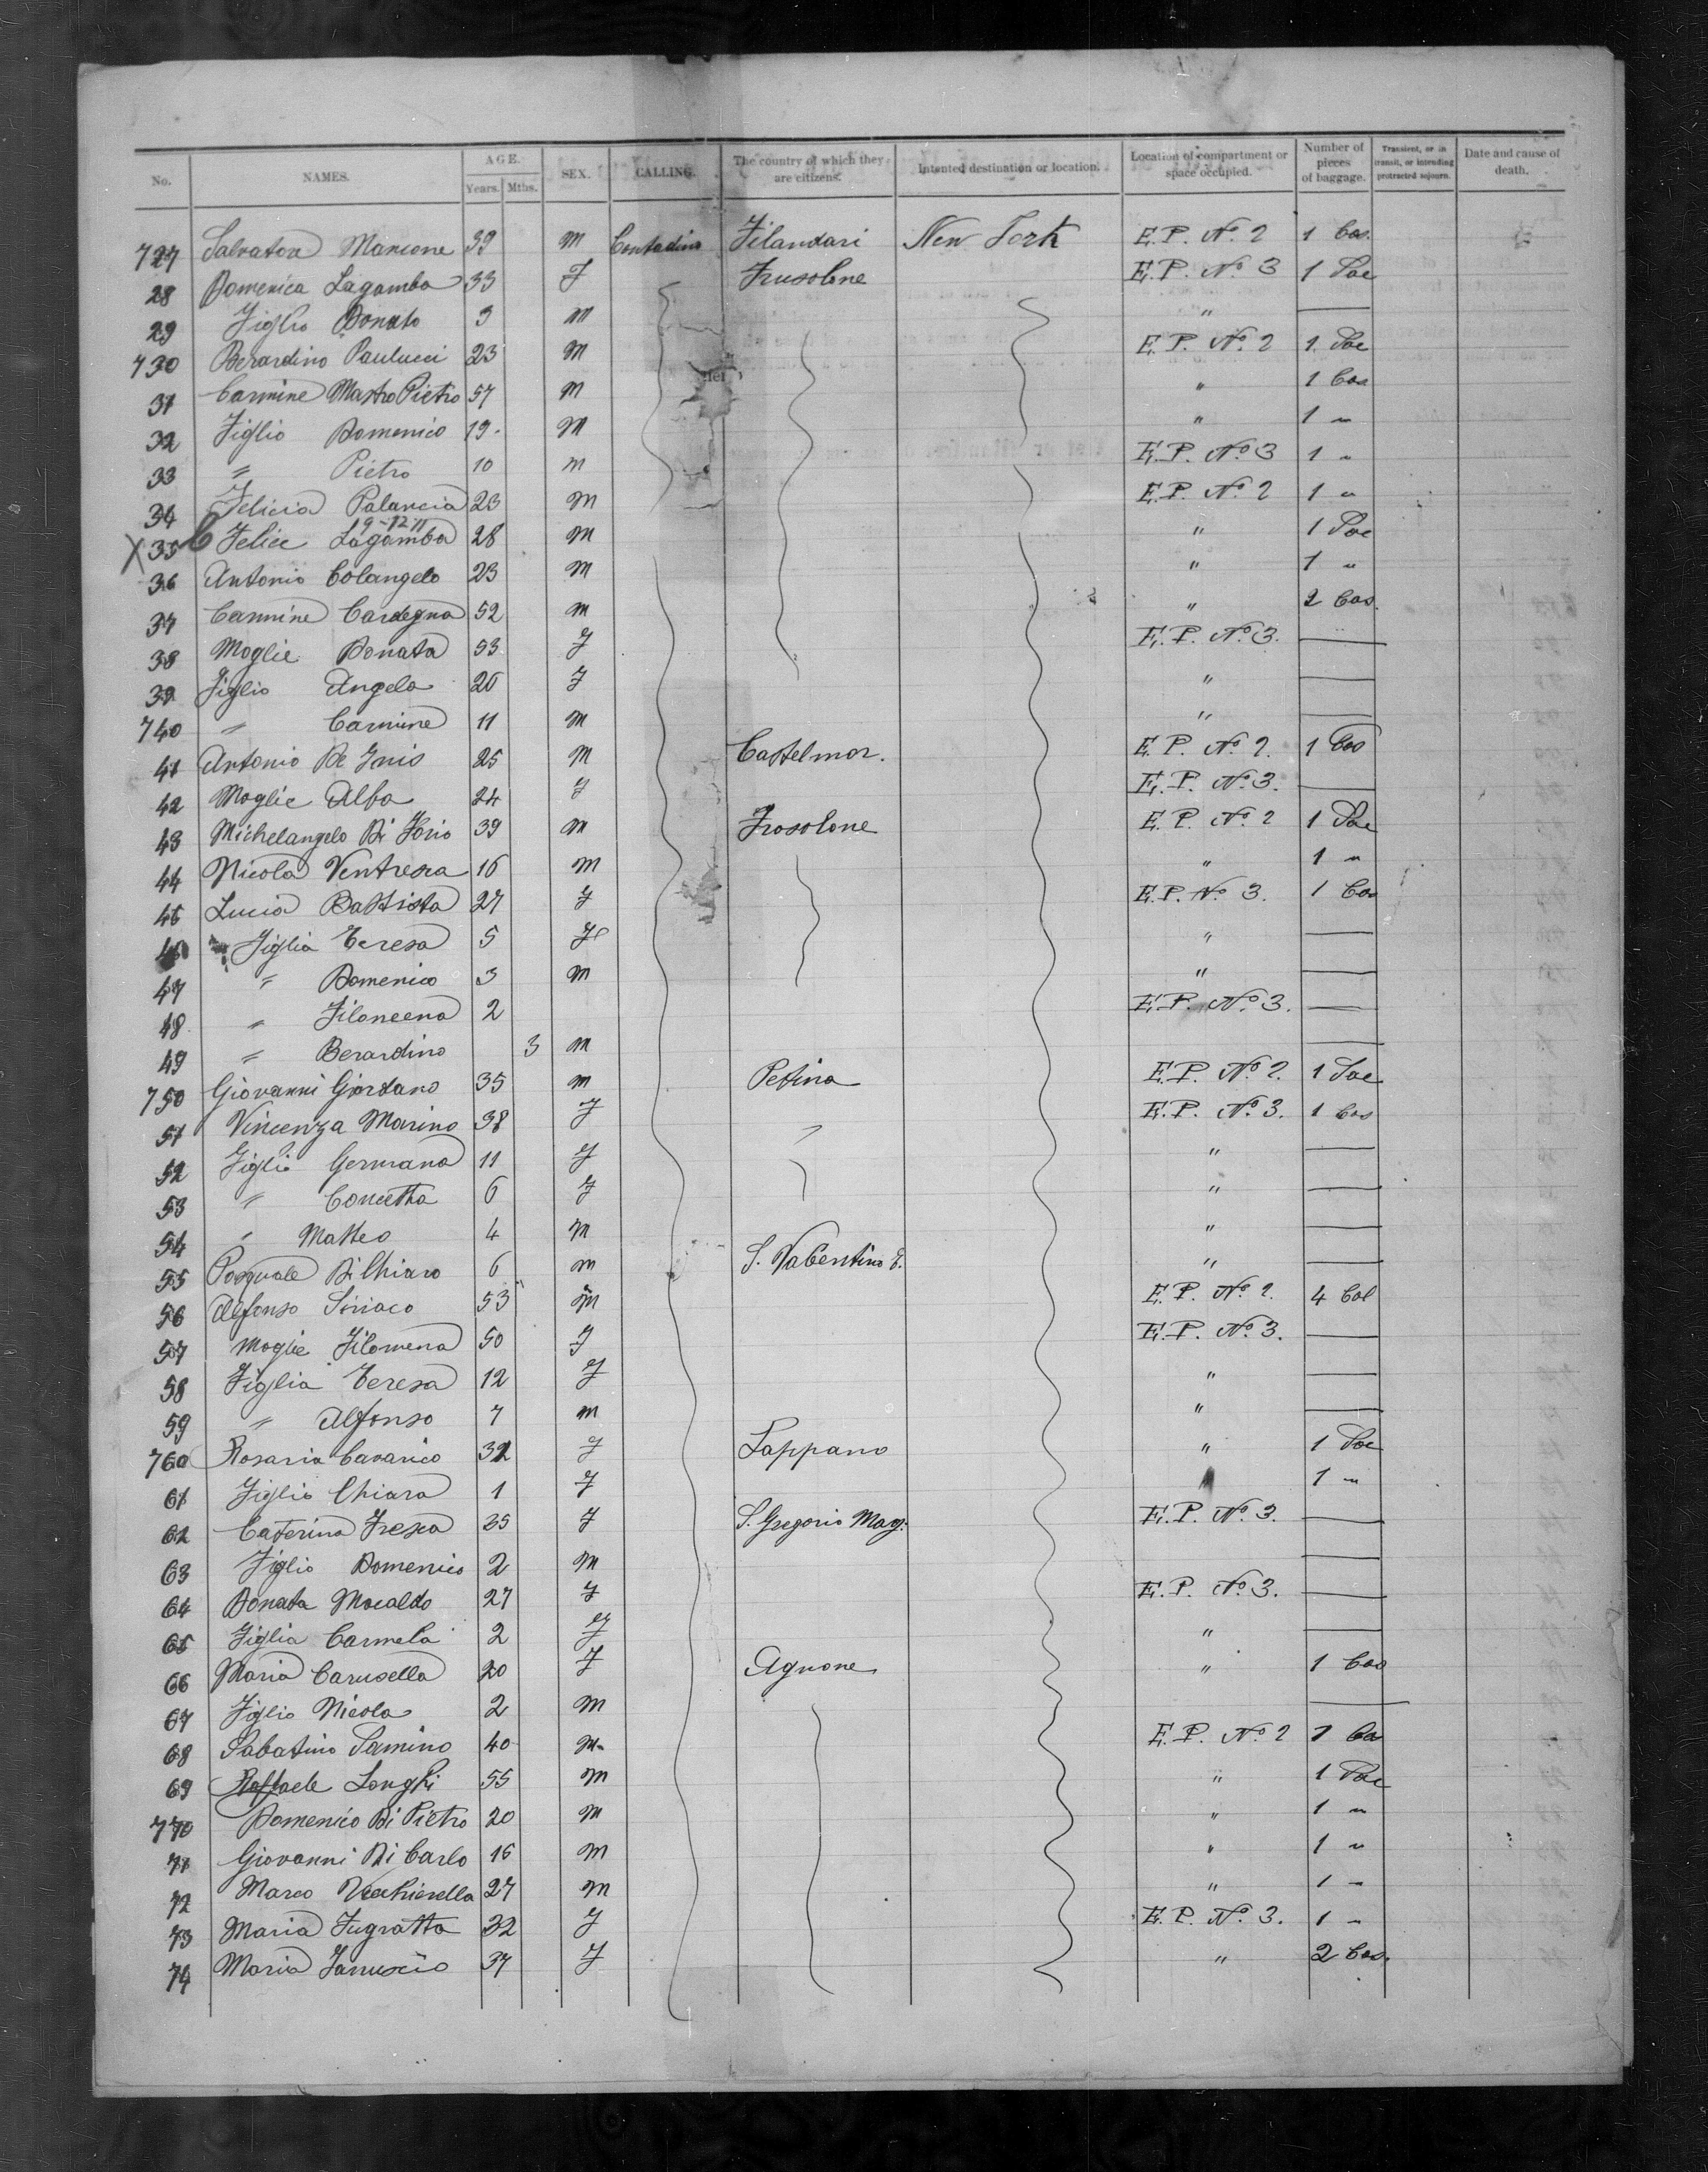 No. NAMES. AGE. Years. Mths. SEX. CALLING. The country of which they are citizens. Intented destination or location. Location of compartment or space occupied. Number of pieces of baggage. Transient, or in transit, or intending protracted sojourn. Date and cause of death.
727 Salvatore Mancone 39 M Contadino Filandari New York E.P. No. 2 1 Cas.
28 Domenica Lagamba 33 F Frusolone E.P. No. 3 1 Sac
29 Figlio Donato 3 M "
730 Berardino Paulucci 23 M E.P. No. 2 1 Sac
31 Carmine Mastro Pietro 57 M " 1 Cas
32 Figlio Domenico 19 M " 1 "
33 " Pietro 10 M E.P. No. 3 1 "
34 Felicia Palancia 23 M E.P. No. 2 1 "
9-12-11
X 35 Felice Lagamba 28 M " 1 Sac
36 Antonio Colangelo 23 M " 1 "
37 Carmine Cardegna 52 M " 2 Cas.
38 Moglie Donata 53 F E.P. No. 3.
39 Figlio Angela 20 F "
740 " Carmine 11 M "
41 Antonio De Inis 25 M Castelmor. E.P. No. 2. 1 Cas
42 Moglie Alba 24 F E.P. No. 3.
43 Michelangelo Di Iorio 39 M Frosolone E.P. No. 2 1 Sac
44 Nicola Ventresca 16 M " 1 "
45 Lucia Battista 27 F E.P. No. 3. 1 Cas
46 Figlia Teresa 5 F "
47 " Domenico 3 M "
48 " Filomena 2 E.P. No. 3.
49 " Berardino 3 M
750 Giovanni Giordano 35 M Petina E.P. No. 2. 1 Sac
51 Vincenza Marino 38 F E.P. No. 3. 1 Cas
52 Figlio Germana 11 F "
53 " Concetta 6 F "
54 " Matteo 4 M "
55 Pasquale Di Chiaro 6 M S. Valentino T. "
56 Alfonso Siriaco 53 M E.P. No. 2. 4 Col
57 Moglie Filomena 50 F E.P. No. 3.
58 Figlia Teresa 12 F "
59 " Alfonso 7 M "
760 Rosaria Cavarico 32 F Lappano " 1 Sac
61 Figlio Chiara 1 F 1 "
62 Caterina Fresca 35 F S. Gregorio Mag. E.P. No. 3.
63 Figlio Domenico 2 M
64 Donata Mocaldo 27 F E.P. No. 3.
65 Figlia Carmela 2 F "
66 Maria Carusella 20 F Agnone " 1 Cas
67 Figlio Nicola 2 M
68 Sabatino Samino 40 M. E.P. No. 2 1 Ca
69 Raffaele Longhi 55 M " 1 Sac
770 Domenico Di Pietro 20 M " 1 "
71 Giovanni Di Carlo 16 M " 1 "
72 Marco Vecchierella 27 M " 1 "
73 Maria Fugratta 32 F E.P. No. 3. 1 "
74 Maria Iannuscio 37 F " 2 Cas.